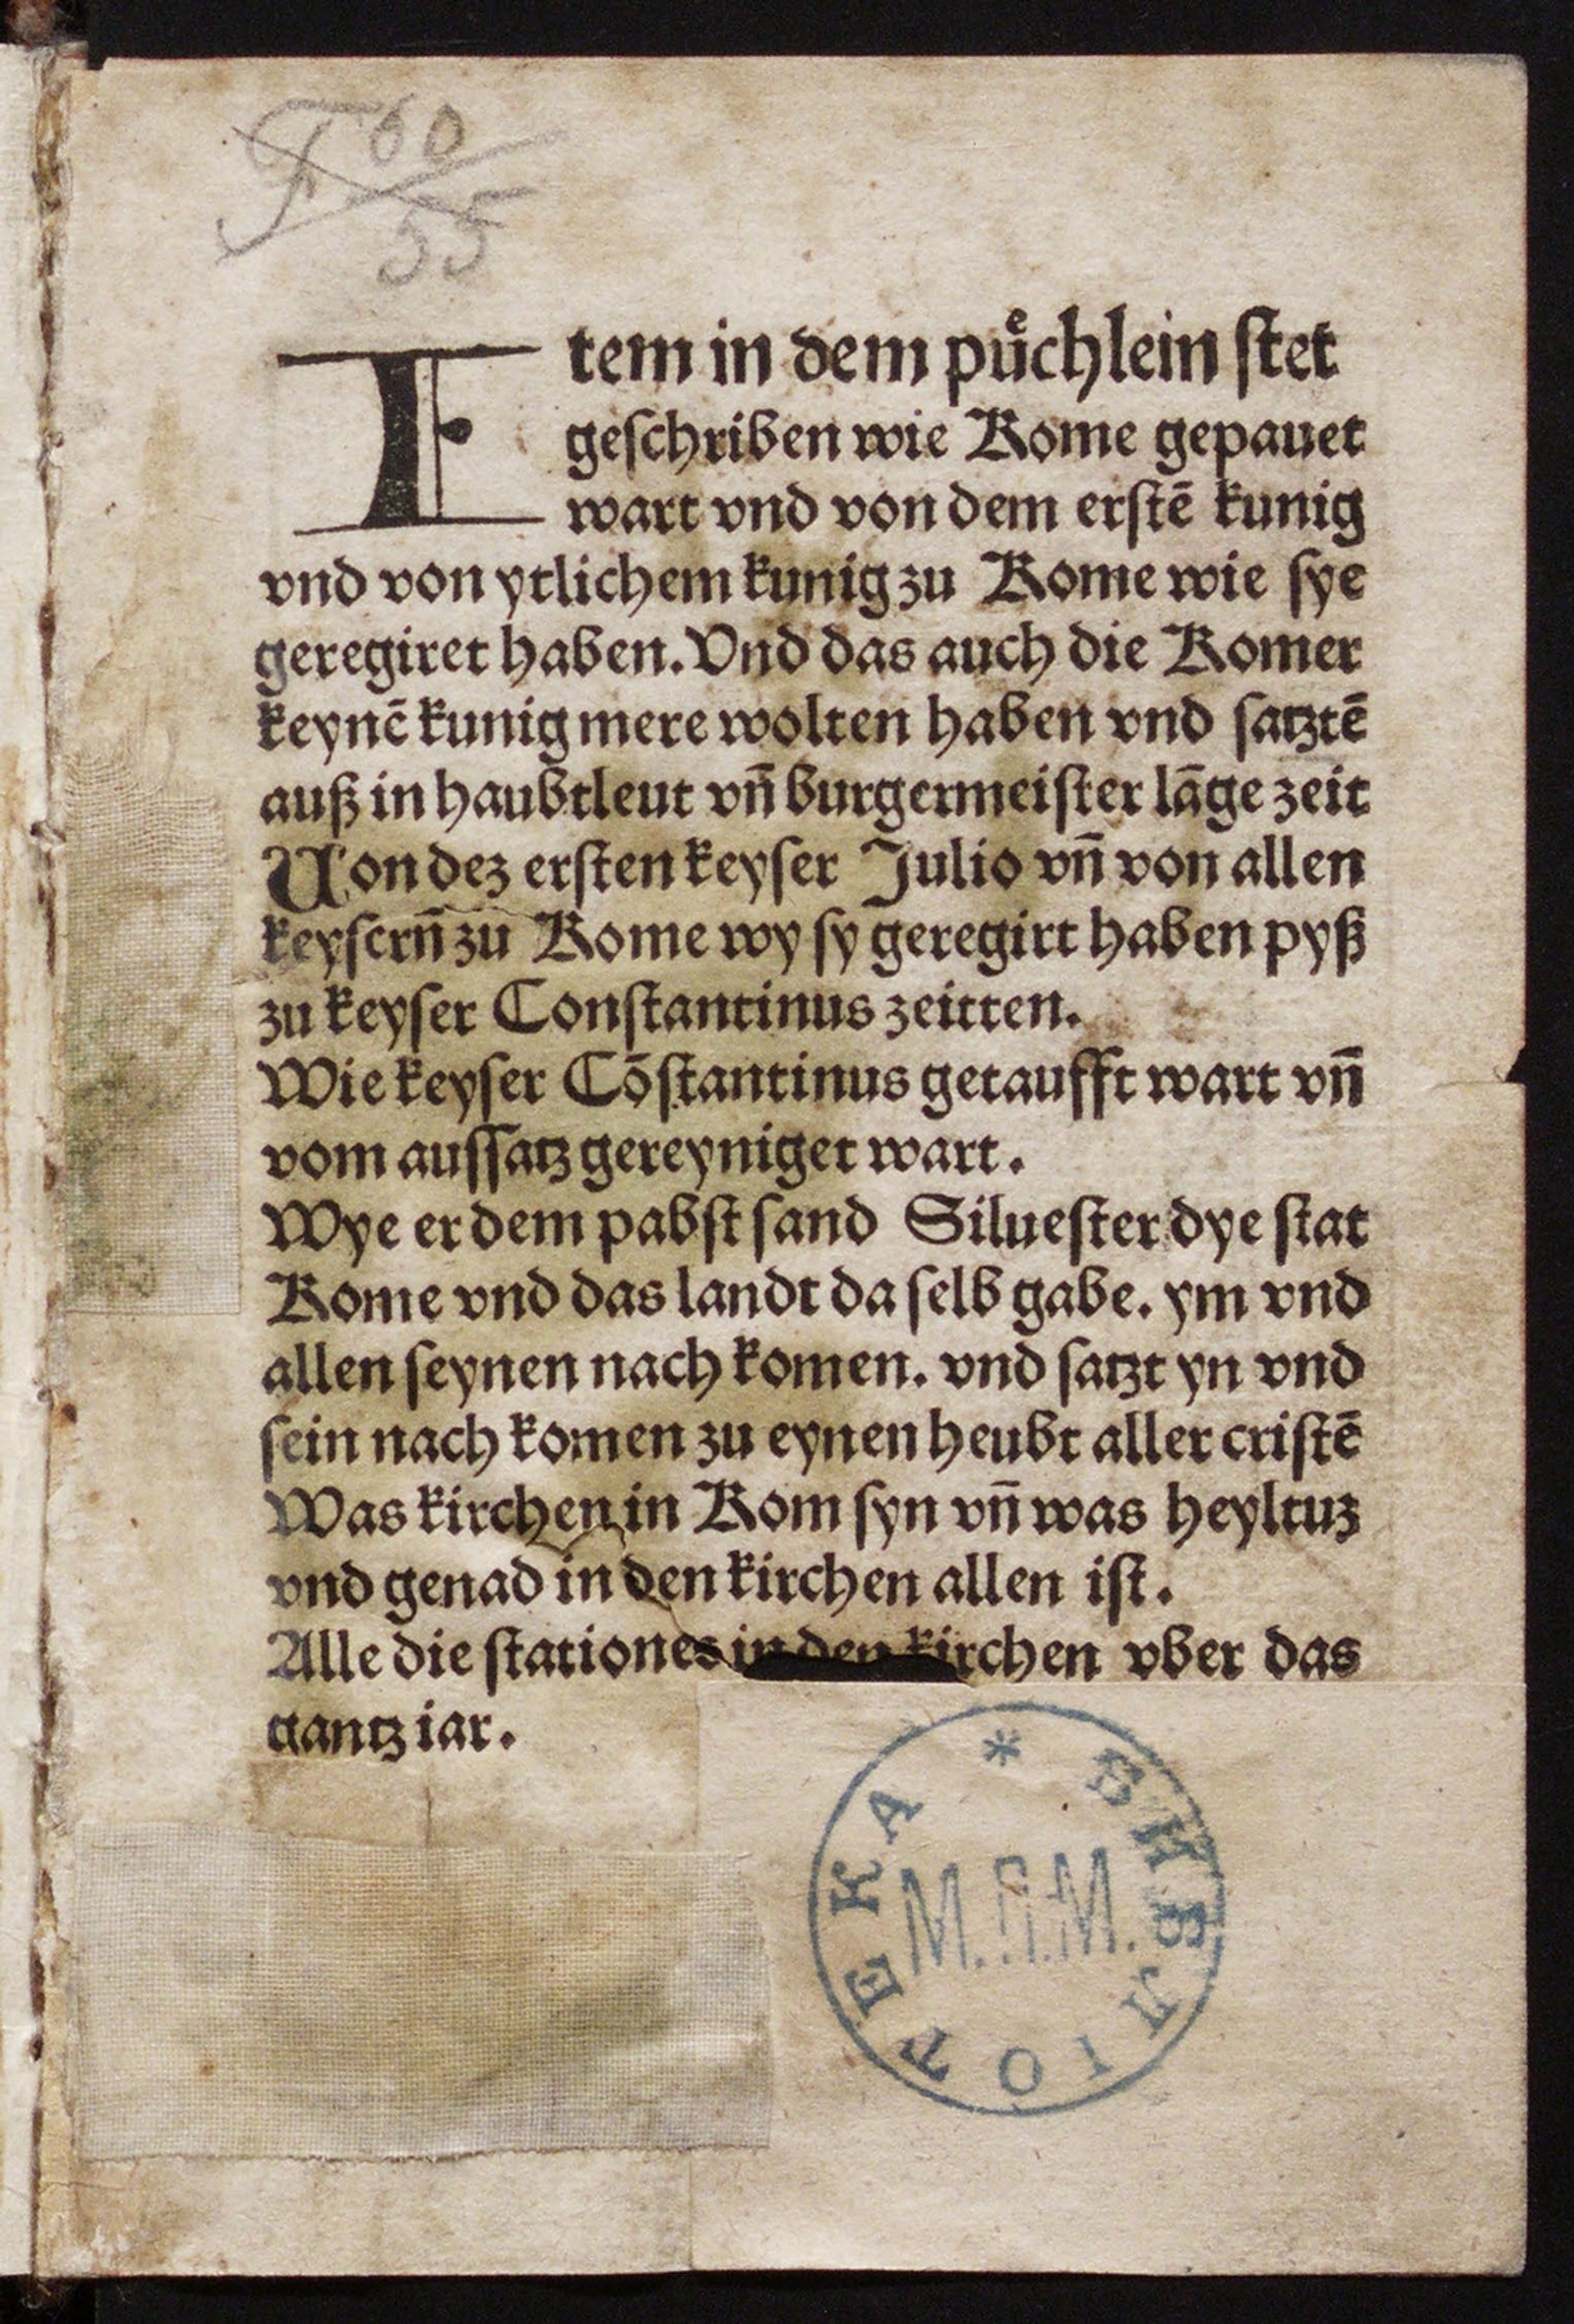 F 60
55
Item in dem puͤchlein ſtet
geſchriben wie Rome gepauet
wart vnd von dem erſtē kunig
vnd von ytlichem kunig zu Rome wie ſye
geregiret haben. Vnd das auch die Romer
keynē kunig mere wolten haben vnd ſatztē
auß in haubtleut vn̄ burgermeiſter lāge zeit
Von dez erſten keyſer Julio vn̄ von allen
keyſern̄ zu Rome wy ſy geregirt haben pyß
zu keyſer Conſtantinus zeitten.
Wie keyſer Cōſtantinus getaufft wart vn̄
vom auſſatz gereyniget wart.
Wye er dem pabſt ſand Silueſter dye ſtat
Rome vnd das landt da ſelb gabe. ym vnd
allen ſeynen nach komen. vnd ſatzt yn vnd
ſein nach komen zu eynen heubt aller criſtē
Was kirchen in Rom ſyn vn̄ was heyltuz
vnd genad in den kirchen allen iſt.
Alle die ſtationes in den kirchen vber das
gantz iar.
* БИБЛІОТЕКА